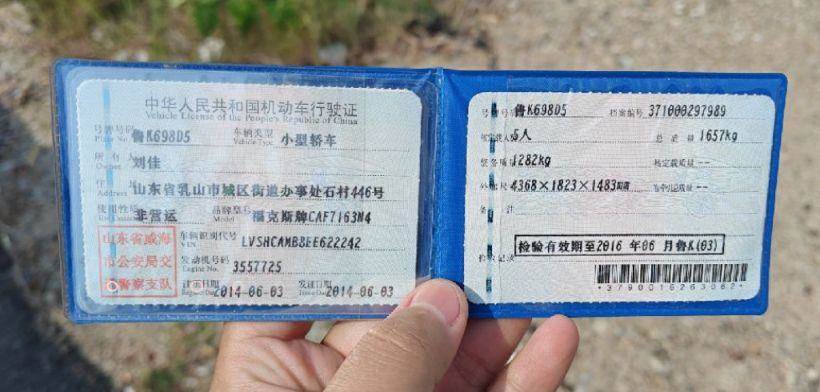 中华人民共和国机动车行驶证
Vehicle License of the People's Republic of China
号牌号码 鲁K698D5 车辆类型 小型轿车
Plate No. Vehicle Type
所有人 刘佳
Owner
山东省乳山市城区街道办事处石村446号
Address
使用性质 非营运 品牌型号 福克斯牌CAF7163N4
Model
山东省威海
市公安局交
通警察支队
车辆识别代号 LVSHCAMB8EE622242
VIN
发动机号码 3557725
Engine No.
注册日期 2014-06-03 发证日期 2014-06-03
Register Date Issue Date
号牌号码 鲁K698D5 档案编号 371000297989
5人 总质量 1657kg
整备质量 1282kg 核定载质量 --
4368×1823×1483 --
备注
检验有效期至2016年06月鲁K(03)
检验记录
*3790016263062*